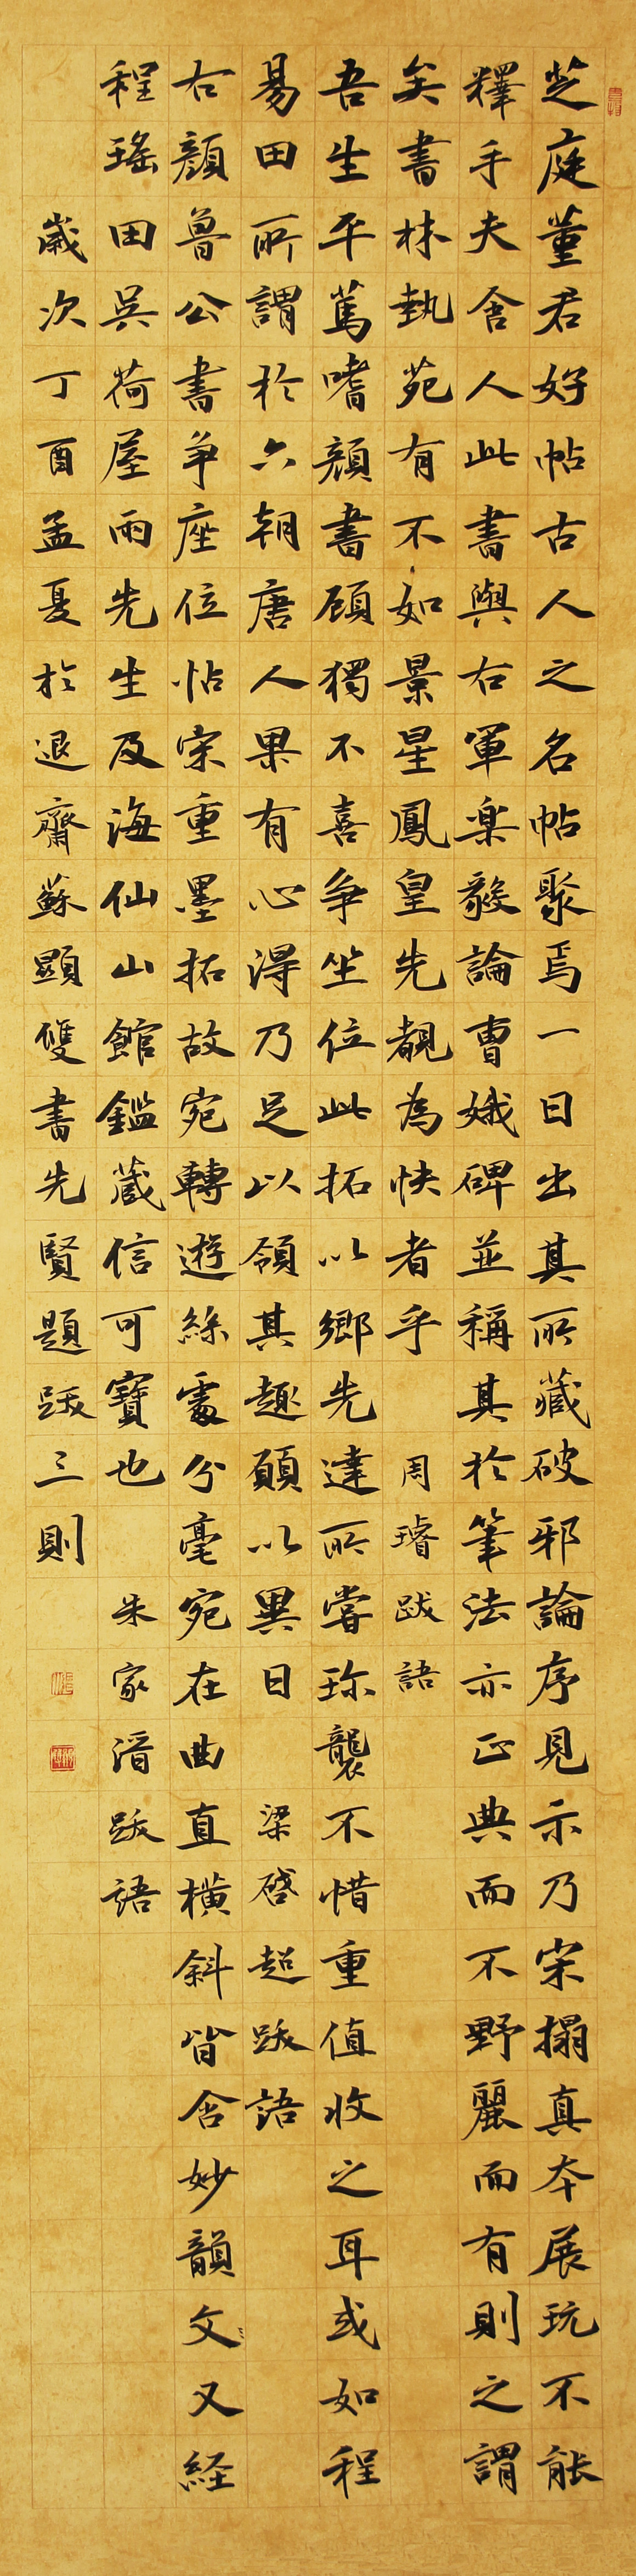 芝庭董君好帖古人之名帖聚焉一日出其所藏破邪論序見示乃宋搨真本展玩不能
釋手夫舍人此書與右軍樂毅論曹娥碑並稱其於筆法亦正典而不野麗而有則之謂
矣書林執苑有不如景星鳳皇先覩為快者乎 周璿跋語
吾生平篤嗜顏書顧獨不喜争坐位此拓以鄉先達所嘗珎襲不惜重值收之耳或如程
易田所謂於六朝唐人果有心得乃足以領其趣願以異日 梁啓超跋語
右顏魯公書争座位帖宋重墨拓故宛轉遊絲處分毫宛在曲直橫斜皆含妙韻文又経
程瑤田吳荷屋兩先生及海仙山館鑑藏信可寶也 朱家濳跋語
歲次丁酉孟夏於退齋蘇顯雙書先賢題跋三則